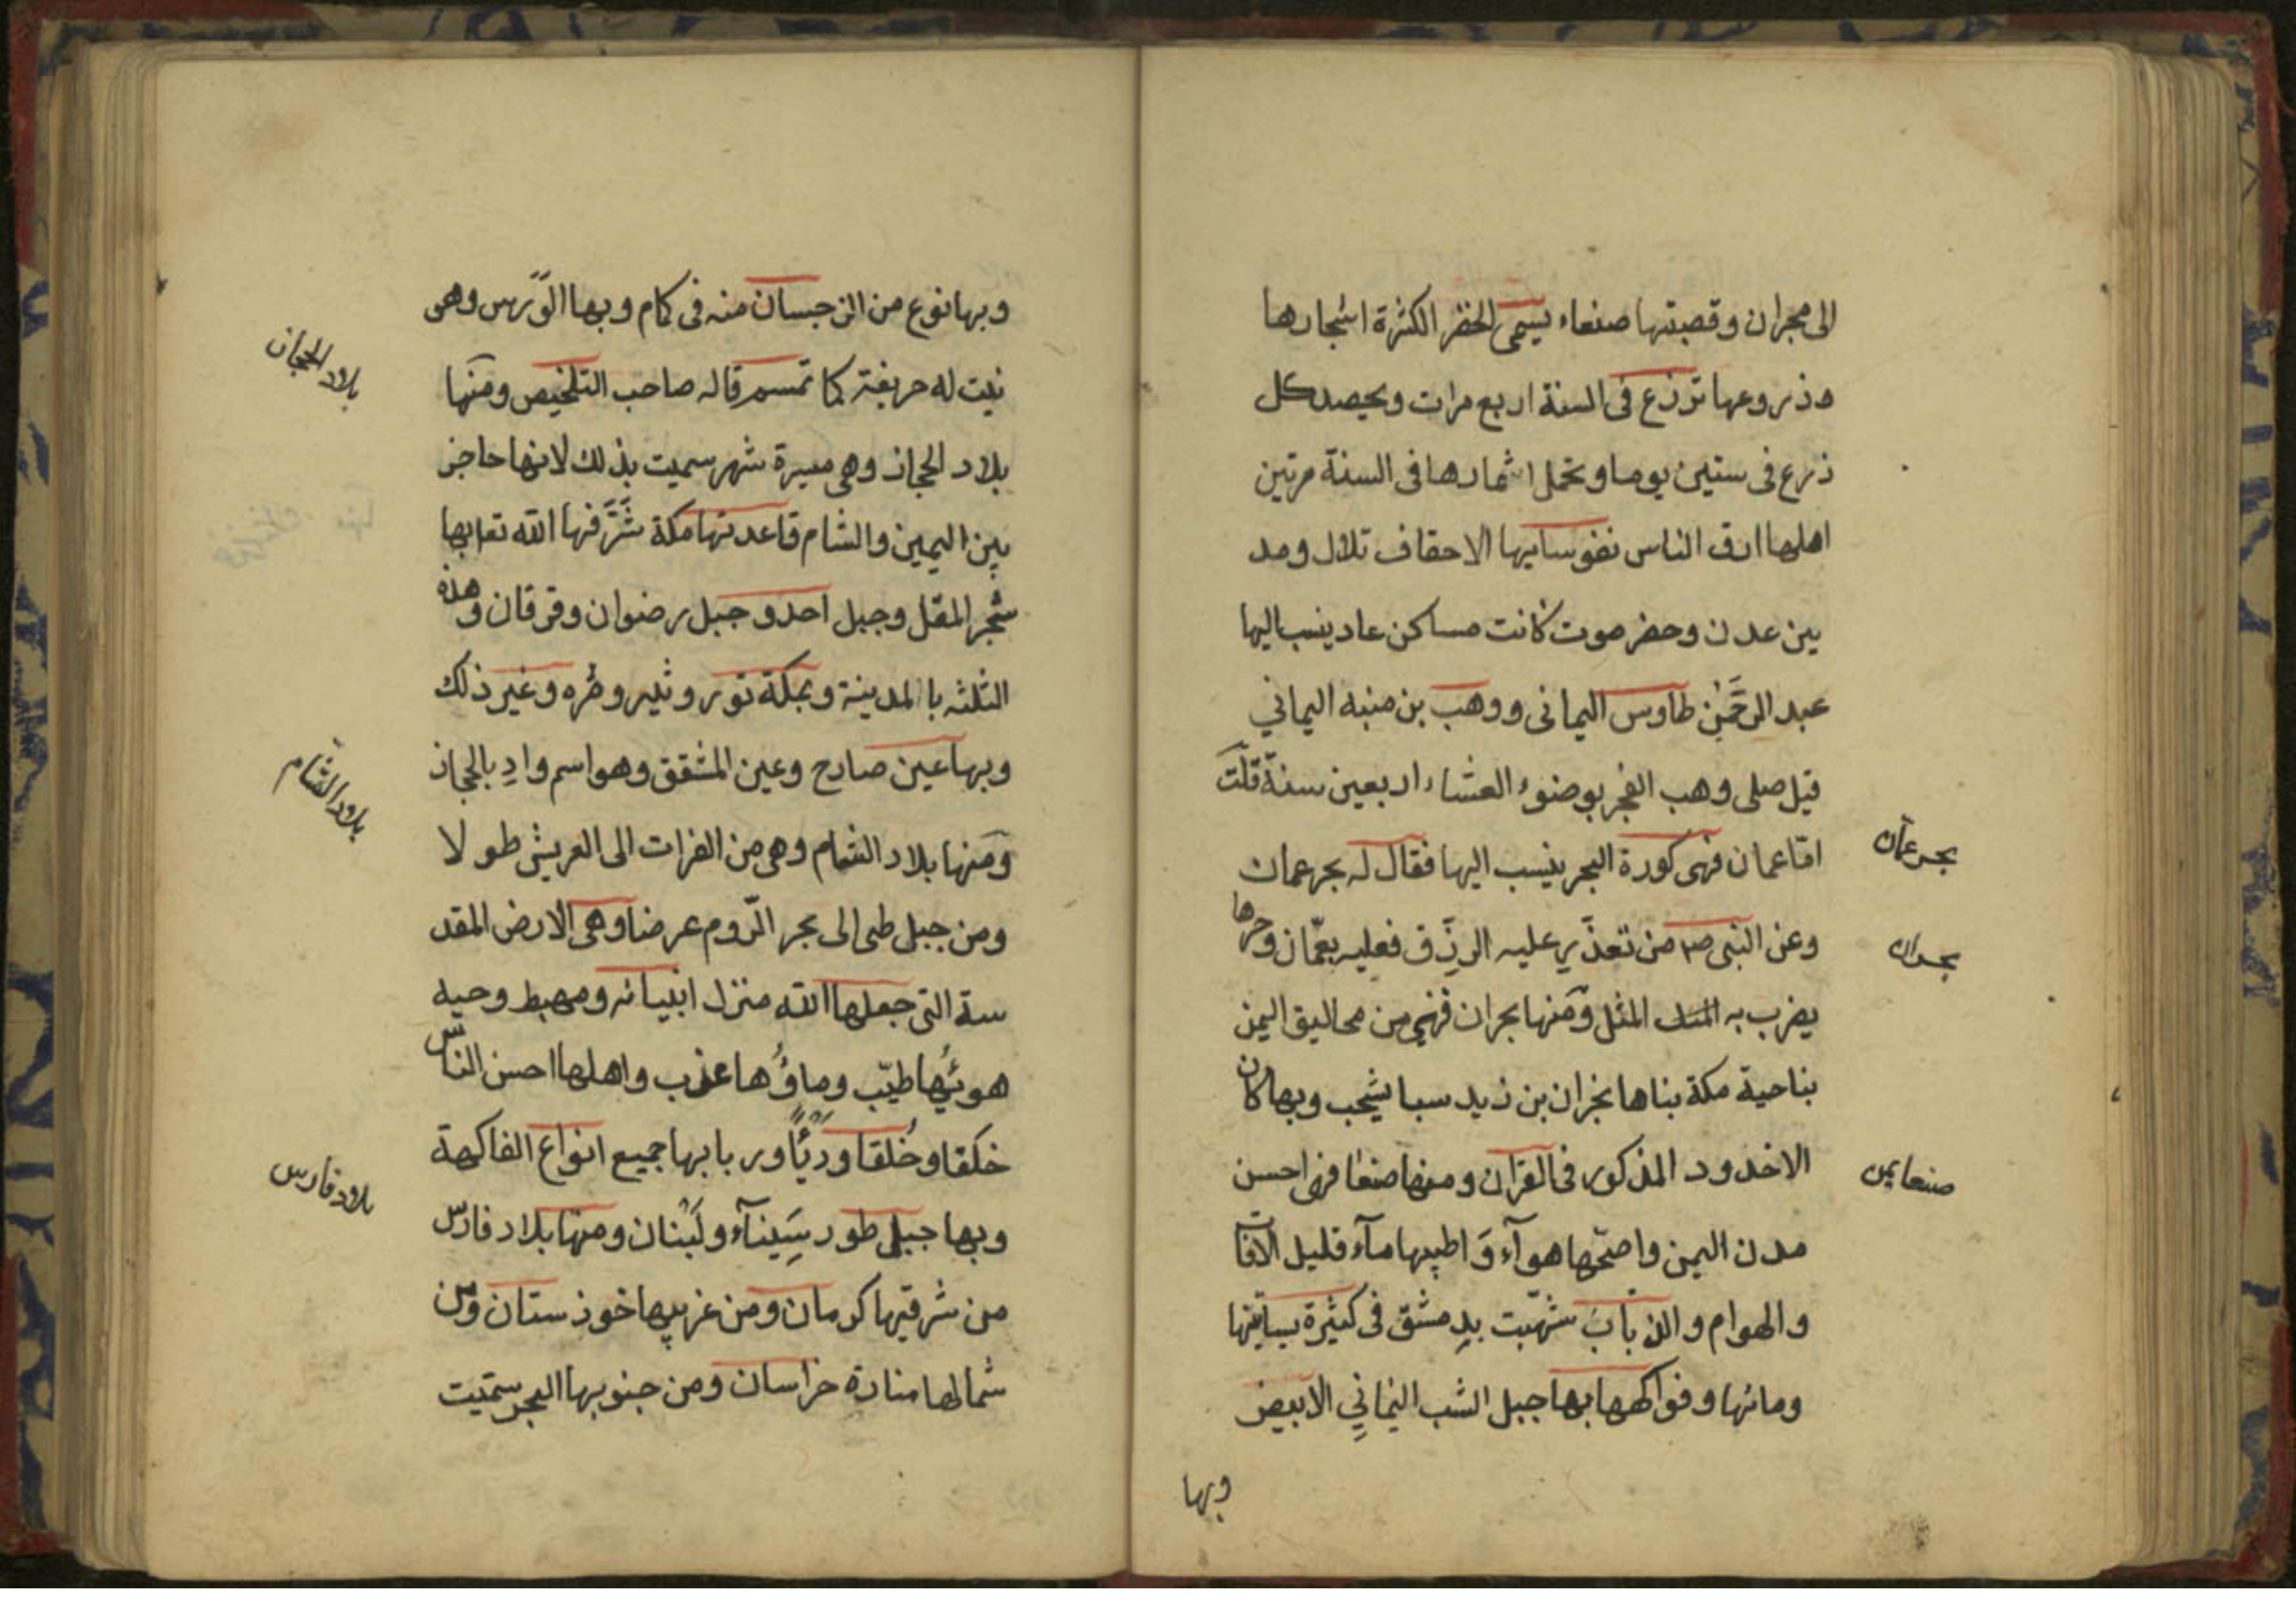 الى مجران وقصبتها صنعاء يسمى الخضر الكثرة اشجارها
وذروعها تزرع فى السنة اربع مرات ويحصد كل
ذرع فى ستين يوما وتحمل اثمارها فى السنة مرتين
اهلها ارق الناس نفوسا بها الاحقاف تلال ومد
بين عدن وحضرموت كانت مساكن عاد ينسب اليها
عبد الرحمٰن طاوس اليمانى ووهب بن منبه اليماني
قيل صلى وهب الفجر بوضوء العشاء اربعين سنة قلت
بحر عمان
امّا عمان فهى كورة البحر ينسب اليها فقال له بحر عمان
وعن النبى صم من تعذّر عليه الرزق فعليه بعمّان وحرها
بحران
يضرب به المثل ومنها بحران فهى من مخاليق اليمن
بناحية مكة بناها نجران بن زيد سبا يشجب وبها كان
الاخدود المذكور فى القران ومنها صنعا فهى احسن
صنعا يمن
مدن اليمن واصحّها هوآء وَاطيبها مآء قليل الافات
والهوام والذبابَ شهّبت بدِمشق فى كثيرة بساتينها
ومائها وفواكهها بها جبل الشب اليمانيِ الابيض
وبها
وبها نوع من النرجسان منه فى كام وبها الوَرس وهى
نبت له حريفة كما تمسم قاله صاحب التلخيص ومنها
بلاد الحجاز
بلاد الحجاز وهى مسيرة شهر سميت بذلك لانها حاجز
بين اليمين والشام قاعدتها مكة شَرَّفها الله تعا بها
شجر المقل وجبل احد وجبل رضوان وقرقان وهذه
الثلثه بالمدينة وبمكة ثور وثبير وحُره وغير ذلك
وبها عين صارح وعين المشقق وهو اسم وادٍ بالحجاز
بلاد الشام
ومنها بلاد الشام وهى من الفرات الى العريش طولا
ومن جبل طى الى بحر الرّوم عرضا وهى الارض المقد
سة التى جعلها الله منزل انبيائه ومهبط وحيه
هوئُها طيّب وماؤُها عذب واهلها احسن الناس
خلقا وخُلقا وزيًّا وربا بها جميع انواع الفاكهة
بلاد فارس
وبها جبلى طور سِيَنآء ولُبنان ومنها بلاد فارس
من شرقيها كرمان ومن غربيها خوزستان ومن
شمالها منارة خراسان ومن جنوبها البحر سمّيت